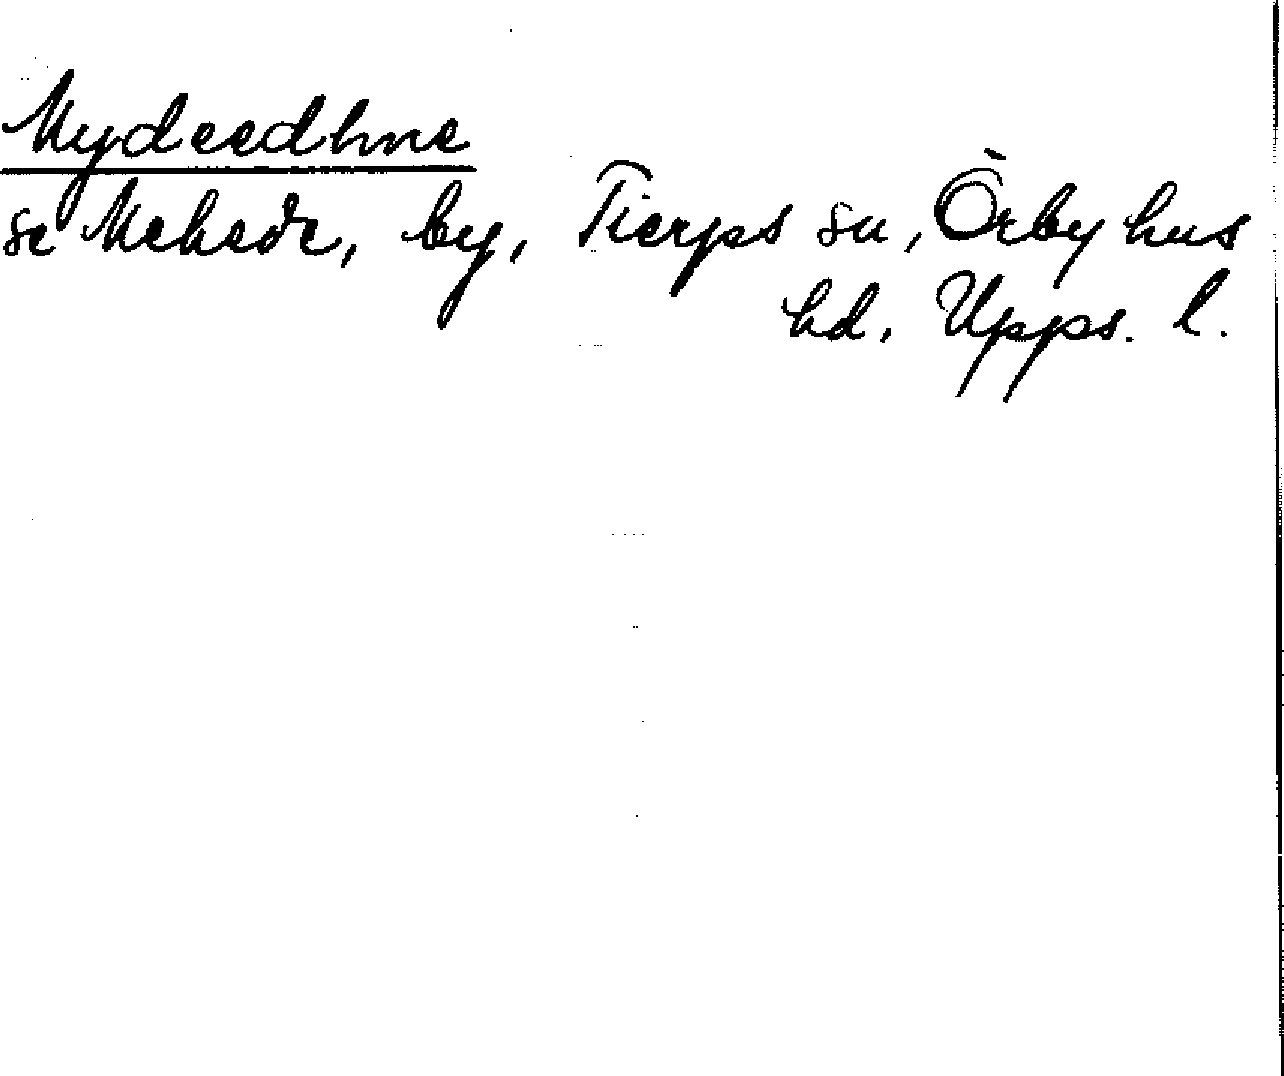 Mydeedhme
se Mehede, by, Tierps sn, Örbyhus
hd, Upps. l.